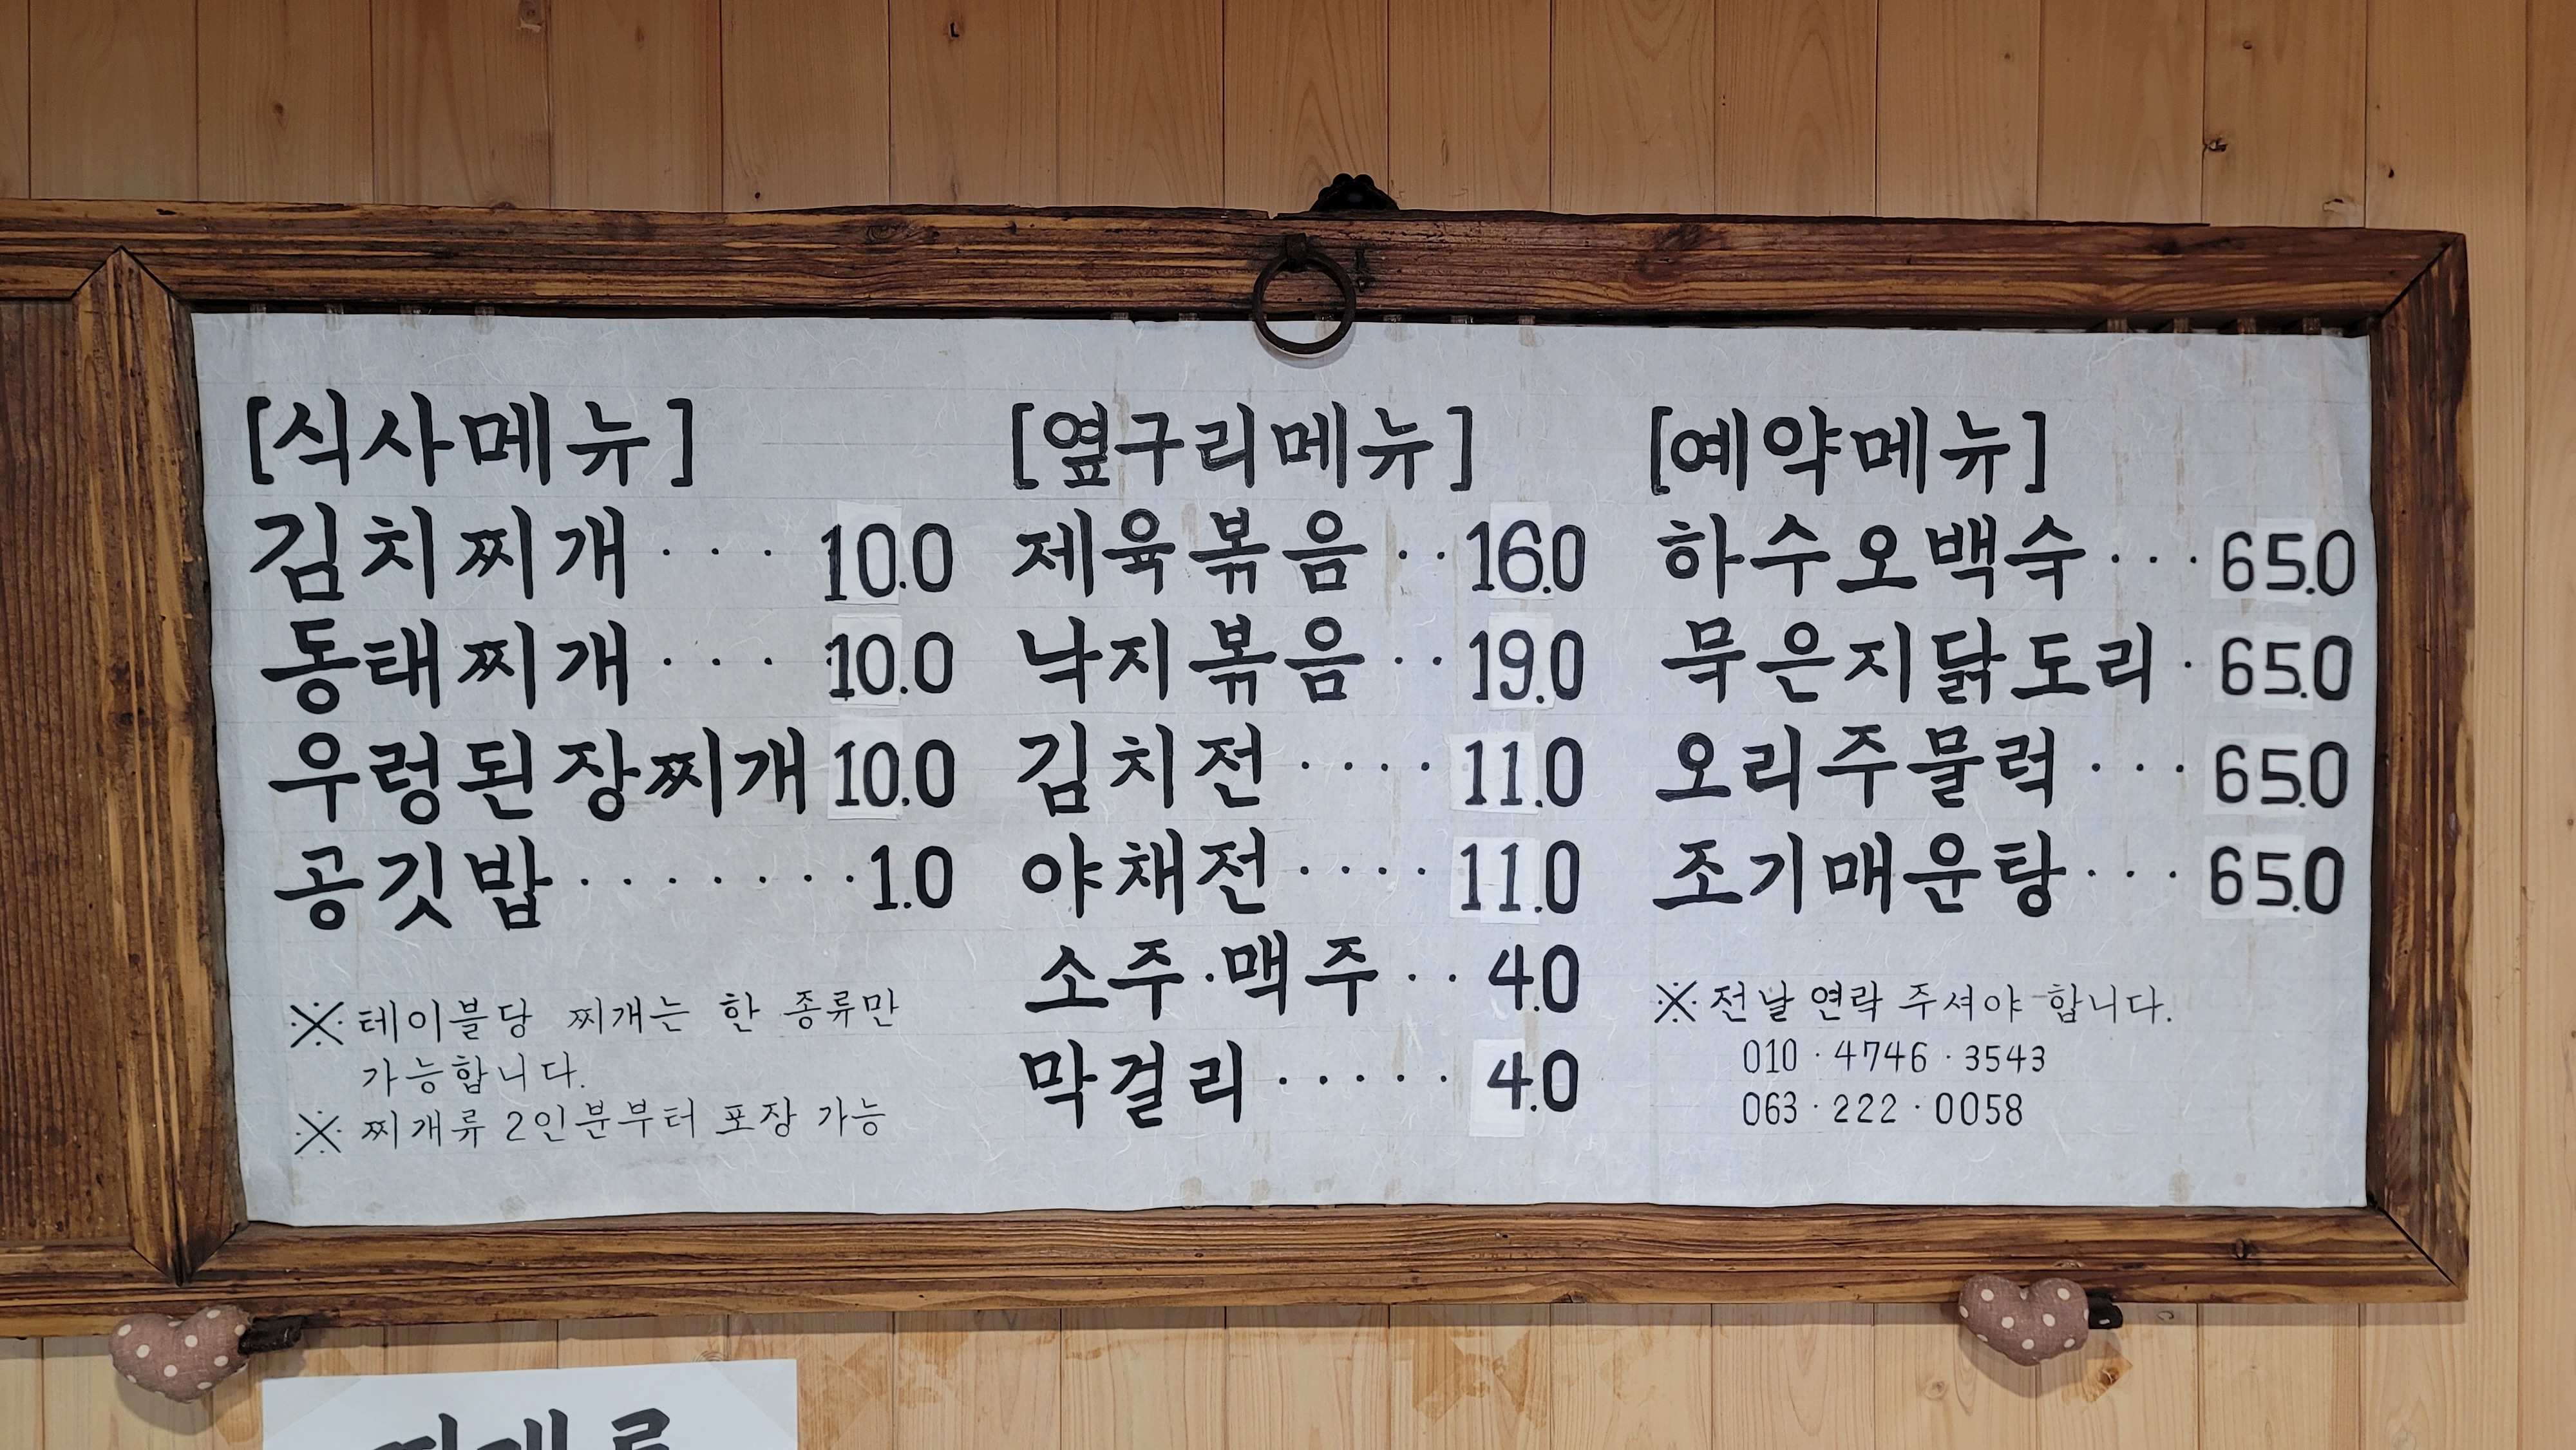 [식사메뉴]
김치찌개 · · · 10.0
동태찌개 · · · 10.0
우렁된장찌개 10.0
공깃밥 · · · · · · · · 1.0
※ 테이블당 찌개는 한 종류만
가능합니다.
※ 찌개류 2인분부터 포장 가능
[옆구리메뉴]
제육볶음 · · 16.0
낙지볶음 · · 19.0
김치전 · · · · 11.0
야채전 · · · · 11.0
소주·맥주 · · 4.0
막걸리 · · · · · 4.0
[예약메뉴]
하수오백숙 · · · 65.0
묵은지닭도리 · 65.0
오리주물럭 · · · 65.0
조기매운탕 · · · 65.0
※ 전날 연락 주셔야 합니다.
010 · 4746 · 3543
063 · 222 · 0058